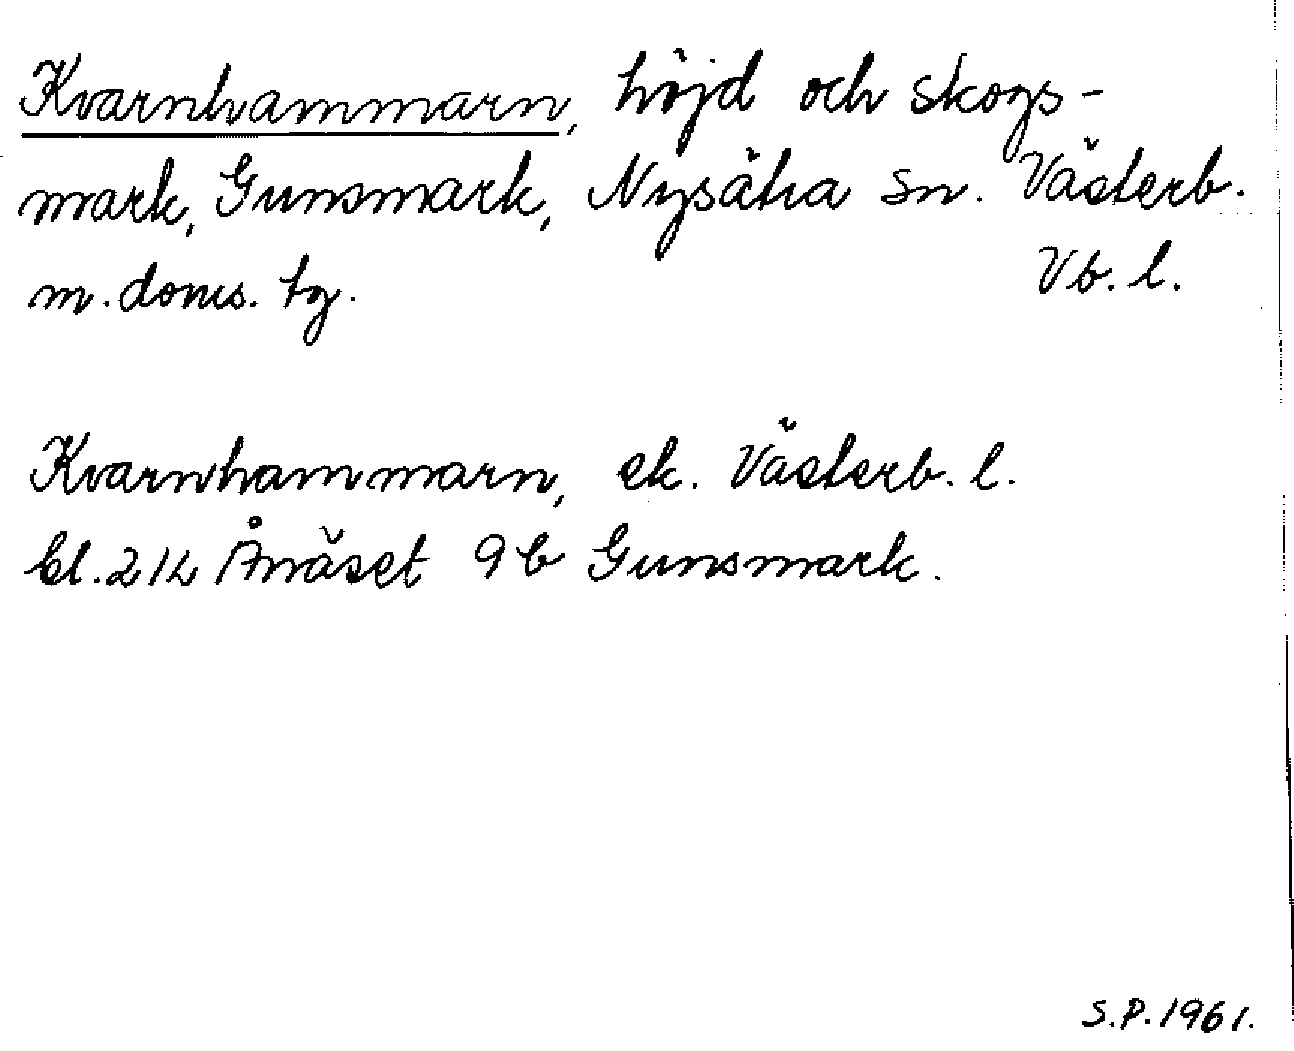 Kvarnhammarn, höjd och skogs-
mark, Gunsmark, Nysätra sn. Västerb.
m. doms. tg. Vb. l.
Kvarnhammarn, ek. Västerb. l.
bl. 21k Ånäset 9b Gunsmark.
S.P. 1961.